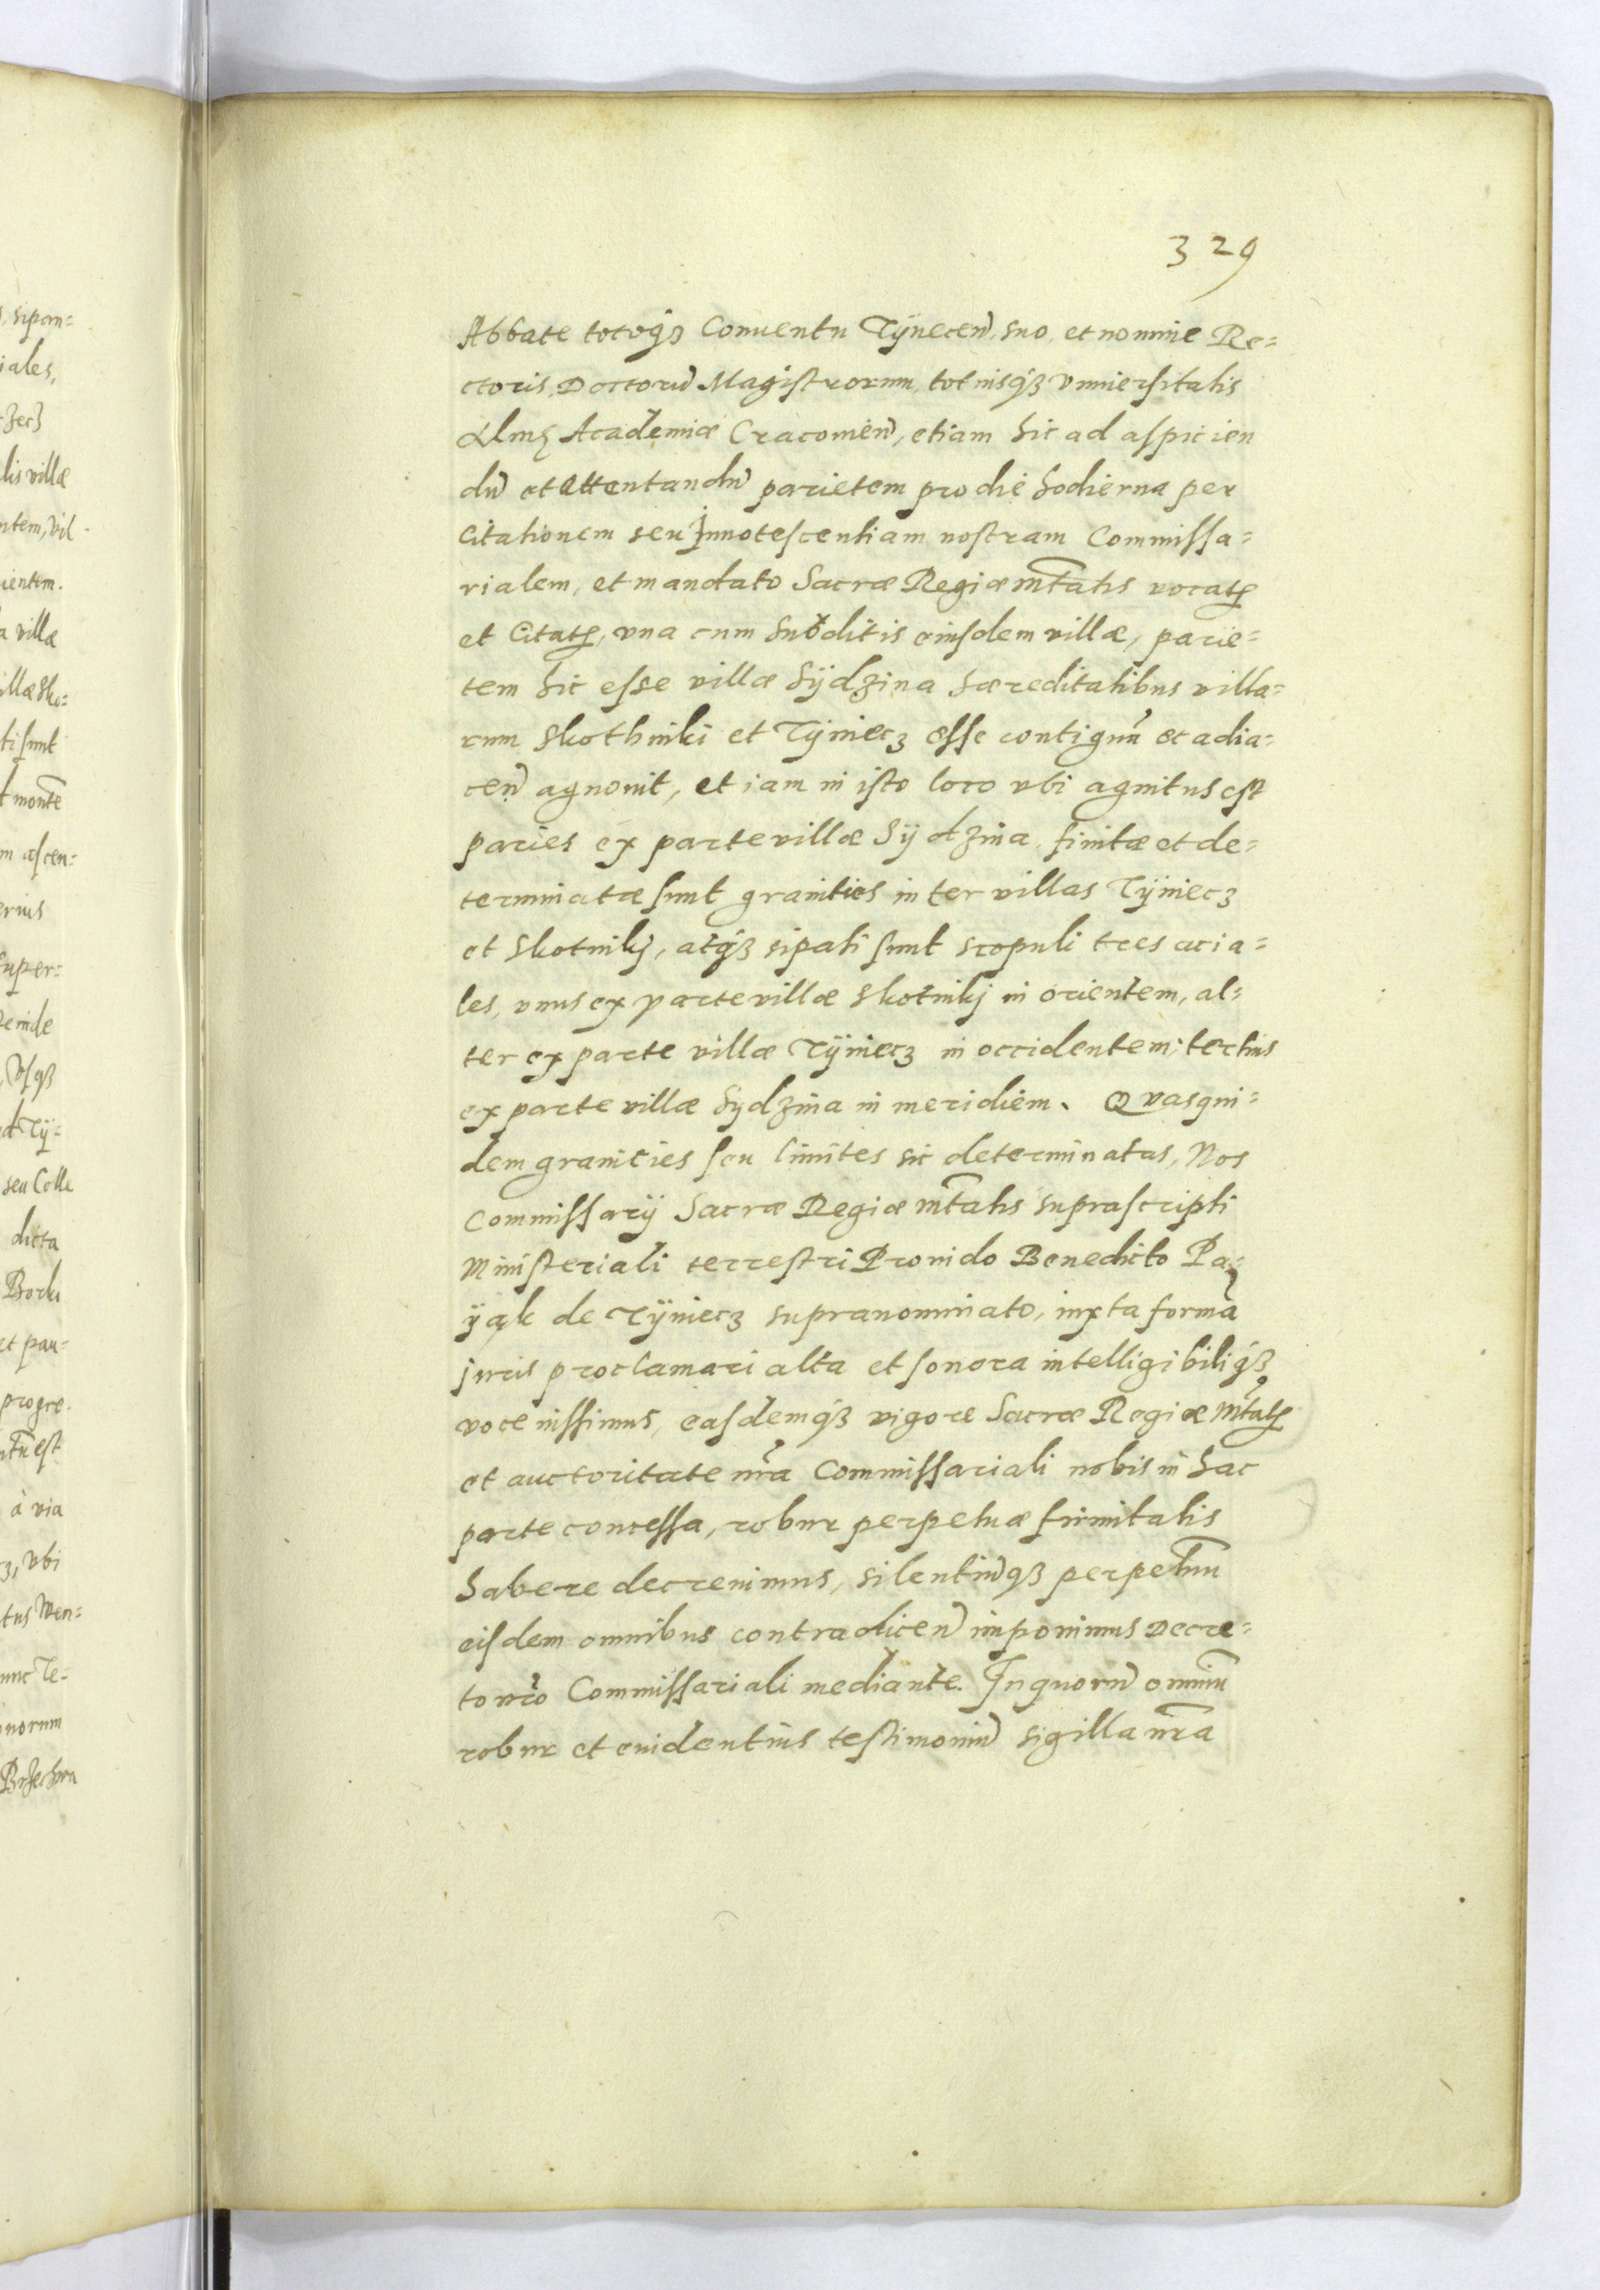 329
Abbate totoqꝫ Conuentu Tÿnecen̄. suo, et nomine Re=
ctoris, Doctorū Magistrorum, totiusqꝫ Vniuersitatis
Almę Academiæ Cracouien̄, etiam hic ad aspicien
dū et attentandū parietem pro die hodierna per
Citationem seu Innotescentiam nostram Commissa=
rialem, et mandato Sacræ Regiæ Mtatis vocatꝭ
et Citatꝭ, vna cum subditis eiusdem villæ, parie=
tem hic esse villæ Sÿdzina hæreditatibus villa=
rum Skothniki et Tÿniecz esse contiguū et adia=
cen̄ agnouit, et iam in isto loco vbi agnitus est
paries ex parte villæ Sÿdzina, finitæ et de=
terminatæ sunt granities inter villas Tÿniecz
et Skotnikj, atqꝫ sipati sunt scopuli tres acia=
les, vnus ex parte villæ Skotnikj in orientem, al=
ter ex parte villæ Tÿniecz in occidentem, tertius
ex parte villæ Sydzina in meridiem. Quasqui=
dem granicies seu limites sic determinatas, Nos
Commissarij Sacræ Regiæ Mtatis suprascripti
Ministeriali terrestri Prouido Benedicto Pa=
ÿąk de Tÿniecz supranominato, iuxta formā
juris proclamari alta et sonora intelligibiliqꝫ
voce iussimus, easdemqꝫ vigore Sacræ Regiæ Mtatꝭ
et auctoritate nrā Commissariali nobis in hac
parte concessa, robur perpetuæ firmitatis
habere decreuimus, silentiūqꝫ perpetuū
eisdem omnibus contradicen̄ imponimus Decre=
to nrō Commissariali mediante. In quorū omniū
robur et euidentius testimoniū sigilla nrā